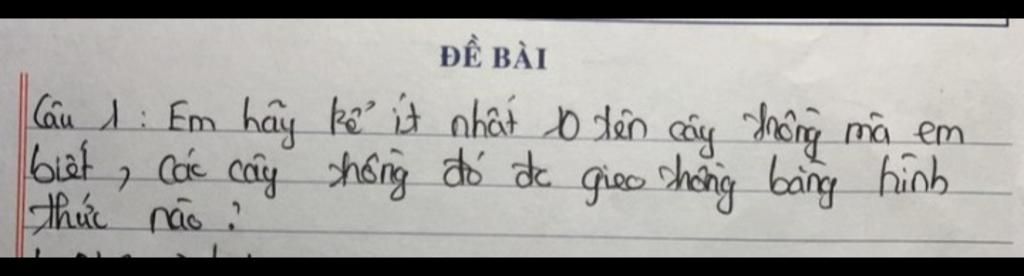 ĐỀ BÀI
Câu 1 : Em hãy kể ít nhất 10 tên cây trồng mà em
biết, các cây trồng đó đc gieo trồng bằng hình
thức nào ?